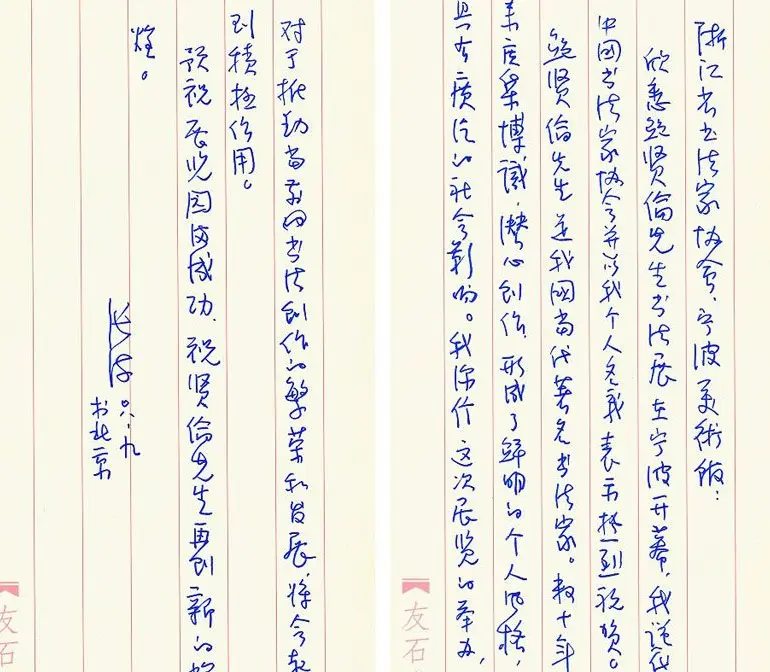 浙江省书法家协会、宁波美術馆：
欣悉鲍贤倫先生书法展在宁波开幕，我谨代
中国书法家协会并以我个人名義表示热烈祝贺。
鲍贤倫先生是我國当代著名书法家。数十年
来广采博識，潜心创作，形成了鲜明的个人风格，
具有广泛的社会影响。我深信这次展览的举办，
对于推动当前的书法创作的繁荣和发展，将会起
到積极作用。
预祝展览园满成功，祝贤倫先生再创新的
煌。
○六·九
书北京
友石
友石